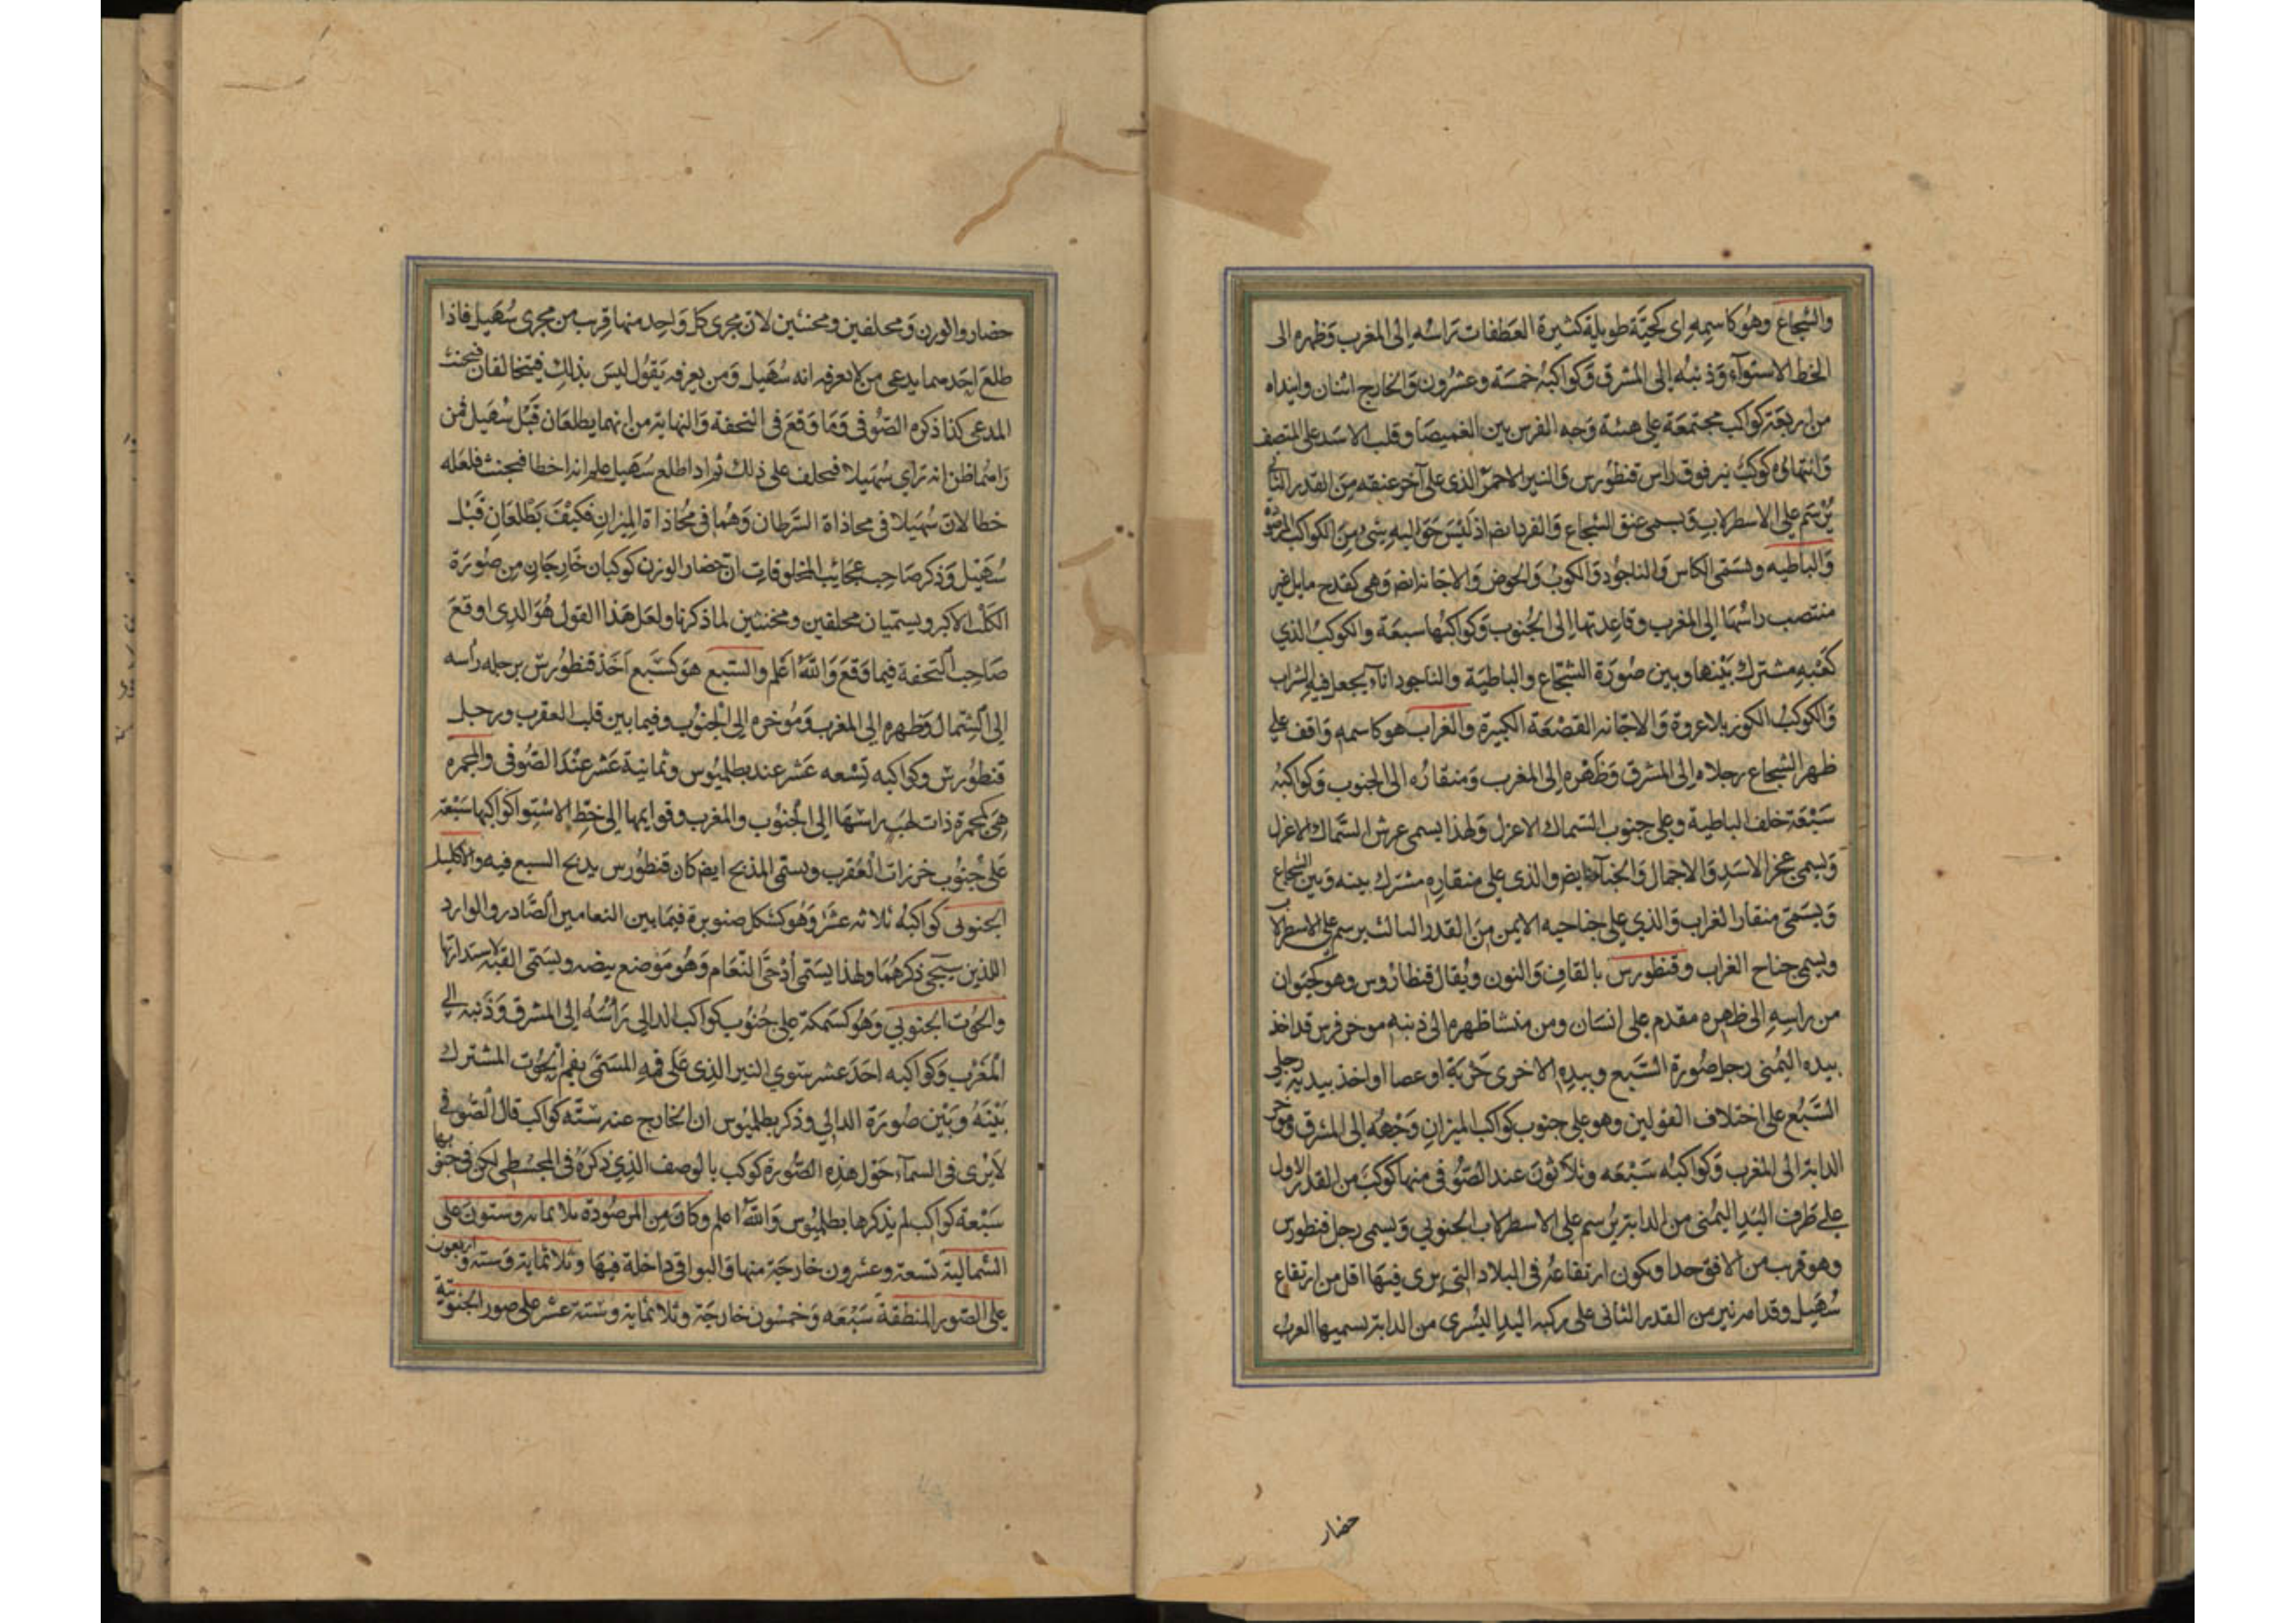 والشجاع وهو كاسمه اى كحيّة طويلة كثيرة العطفات راسه الى المغرب وظهره الى
الخط الاستوآء وذنبه الى المشرق وكواكبه خمسة وعشرون والخارج اثنان وابتداه
من اربعة كواكب مجتمعة على هيئة وجه الفرس بين الغميصا وقلب الاسد على المنتصف
وانتهاؤه كوكب نير فوق راس قنطورس والنير الاحمر الذى على آخر عنقه من القدر الثانى
يرسم على الاسطرلاب ويسمى عنق الشجاع والفرد ايضا اذ ليس حواليه شئ من الكواكب
والباطيه وتسمى الكاس والناجود والكوب والحوض والاجانه ايضا وهى كقدح مايل غير
منتصب راسها الى المغرب وقاعدتها الى الجنوب وكواكبها سبعة والكوكب الذي
كعبه مشترك بينها وبين صورة الشجاع والباطية والناجود اناء يجعل فيه الشراب
والكوكب الكوز بلا عروة والاجانه القصعة الكبيرة والغراب هو كاسمه واقف على
ظهر الشجاع رجلاه الى المشرق وظهره الى المغرب ومنقاره الى الجنوب وكواكبه
سبعة خلف الباطية وعلى جنوب السماك الاعزل ولهذا يسمى عرش السماك الاعزل
ويسمى عجز الاسد والاجمال والخبآء ايضا والذى على منقاره مشترك بينه وبين الشجاع
ويسمى منقار الغراب والذي على جناحيه الايمن من القدر الثالث يرسم على الاسطرلاب
ويسمى جناح الغراب وقنطورس بالقاف والنون ويقال قنطاروس وهو كحيوان
من راسه الى ظهره مقدم على انسان ومن منشا ظهره الى ذنبه موخر فرس قد اخذ
بيده اليمنى رجل صورة السبع وبيده الاخرى حربة او عصا او اخذ بيديه رجلى
السبع على اختلاف القولين وهو على جنوب كواكب الميزان وجهه الى المشرق وموخر
الدابة الى المغرب وكواكبه سبعه وثلاثون عند الصوفى منها كوكب من القدر الاول
على طرف اليد اليمنى من الدابة يرسم على الاسطرلاب الجنوبي ويسمى رجل قنطورس
وهو قريب من الافق جدا ويكون ارتفاعه فى البلاد التى يرى فيها اقل من ارتفاع
سهيل وقدامه نير من القدر الثانى على ركبه اليد اليسرى من الدابة يسميها العرب
حضار
حضار والوزن ومحلفين ومحنثين لان مجرى كل واحد منهما قريب من مجرى سهيل فاذا
طلع احدهما يدعى من لا يعرفه انه سهيل ومن يعرفه يقول ليس بذلك فيتحالفان فيحنث
المدعى كذا ذكره الصوفى وما وقع فى التحفة والنهاية من انهما يطلعان قبل سهيل فمن
رامهما ظن انه راى سهيلا فيحلف على ذلك ثم اذا طلع سهيل علم انه اخطا فيحنث فلعله
خطا لان سهيلا فى محاذاة السرطان وهما فى محاذاة الميزان فكيف يطلعان قبل
سهيل وذكر صاحب عجايب المخلوقات ان حضار الوزن كوكبان خارجان من صورة
الكلب الاكبر ويسميان محلفين ومحنثين لما ذكرنا ولعل هذا القول هو الذى اوقع
صاحب التحفة فيما وقع والله اعلم والسبع هو كسبع اخذ قنطورس برجله راسه
الى الشمال وظهره الى المغرب وموخره الى الجنوب وفيما بين قلب العقرب ورجل
قنطورس وكواكبه تسعه عشر عند بطلميوس وثمانية عشر عند الصوفى والمجمره
هى كمجمرة ذات لهب راسها الى الجنوب والمغرب وقوايمها الى خط الاستوا كواكبها سبعة
على جنوب خرزات العقرب ويسمى المذبح ايضا كان قنطورس يذبح السبع فيه والاكليل
الجنوبى كواكبه ثلاثه عشر وهو كشكل صنوبرة فيما بين النعامين الصادر والوارد
اللذين سيجئ ذكرهما ولهذا يسمى أدحى النعام وهو موضع بيضه ويسمى القبة لاستدارتها
والحوت الجنوبي وهو كسمكة على جنوب كواكب الدالى راسه الى المشرق وذنبه الى
المغرب وكواكبه احد عشر سوي النير الذى على فمه المسمى بفم الحوت المشترك
بينه وبين صورة الدالي وذكر بطلميوس ان الخارج عنه سته كواكب قال الصوفى
لا يرى فى السمآء حول هذه الصورة كوكب بالوصف الذي ذكره فى المجسطى لكن فى جنوبها
سبعة كواكب لم يذكرها بطلميوس والله اعلم وكان من المرصودة ثلاثمائة وستون على
الشمالية تسعة وعشرون خارجة منها والبواقى داخلة فيها وثلاثماية وستة واربعون
على الصور المنطقة سبعه وخمسون خارجة وثلاثماية وستة عشر على صور الجنوبية